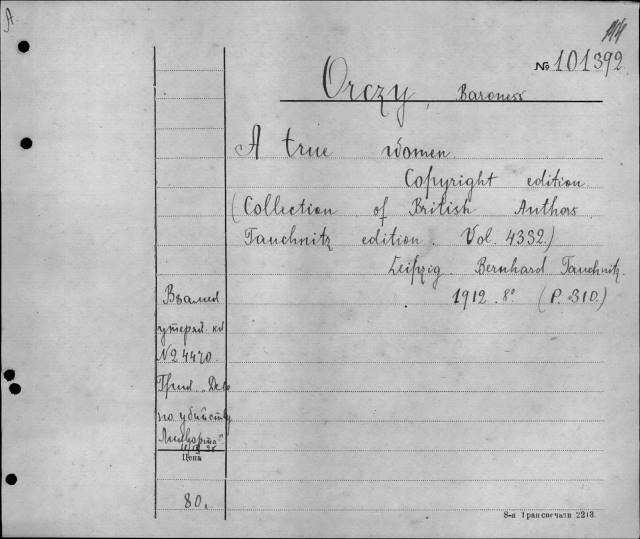 A
№ 101392
Orczy, Baroness
A true women.
Copyright edition
(Collection of British Authors
Tauchnitz edition. Vol. 4332.)
Leipzig. Bernhard Tauchnitz.
1912. 8° (P. 310.)
Взамен
утерян. кн
№ 24470.
Грин. „Дело
по убийству
"
Цена
80.
8-я Транспечати 2213.